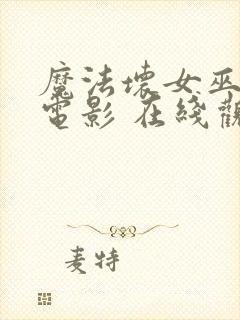 魔法壞女巫
電影 在綫觀
麦特